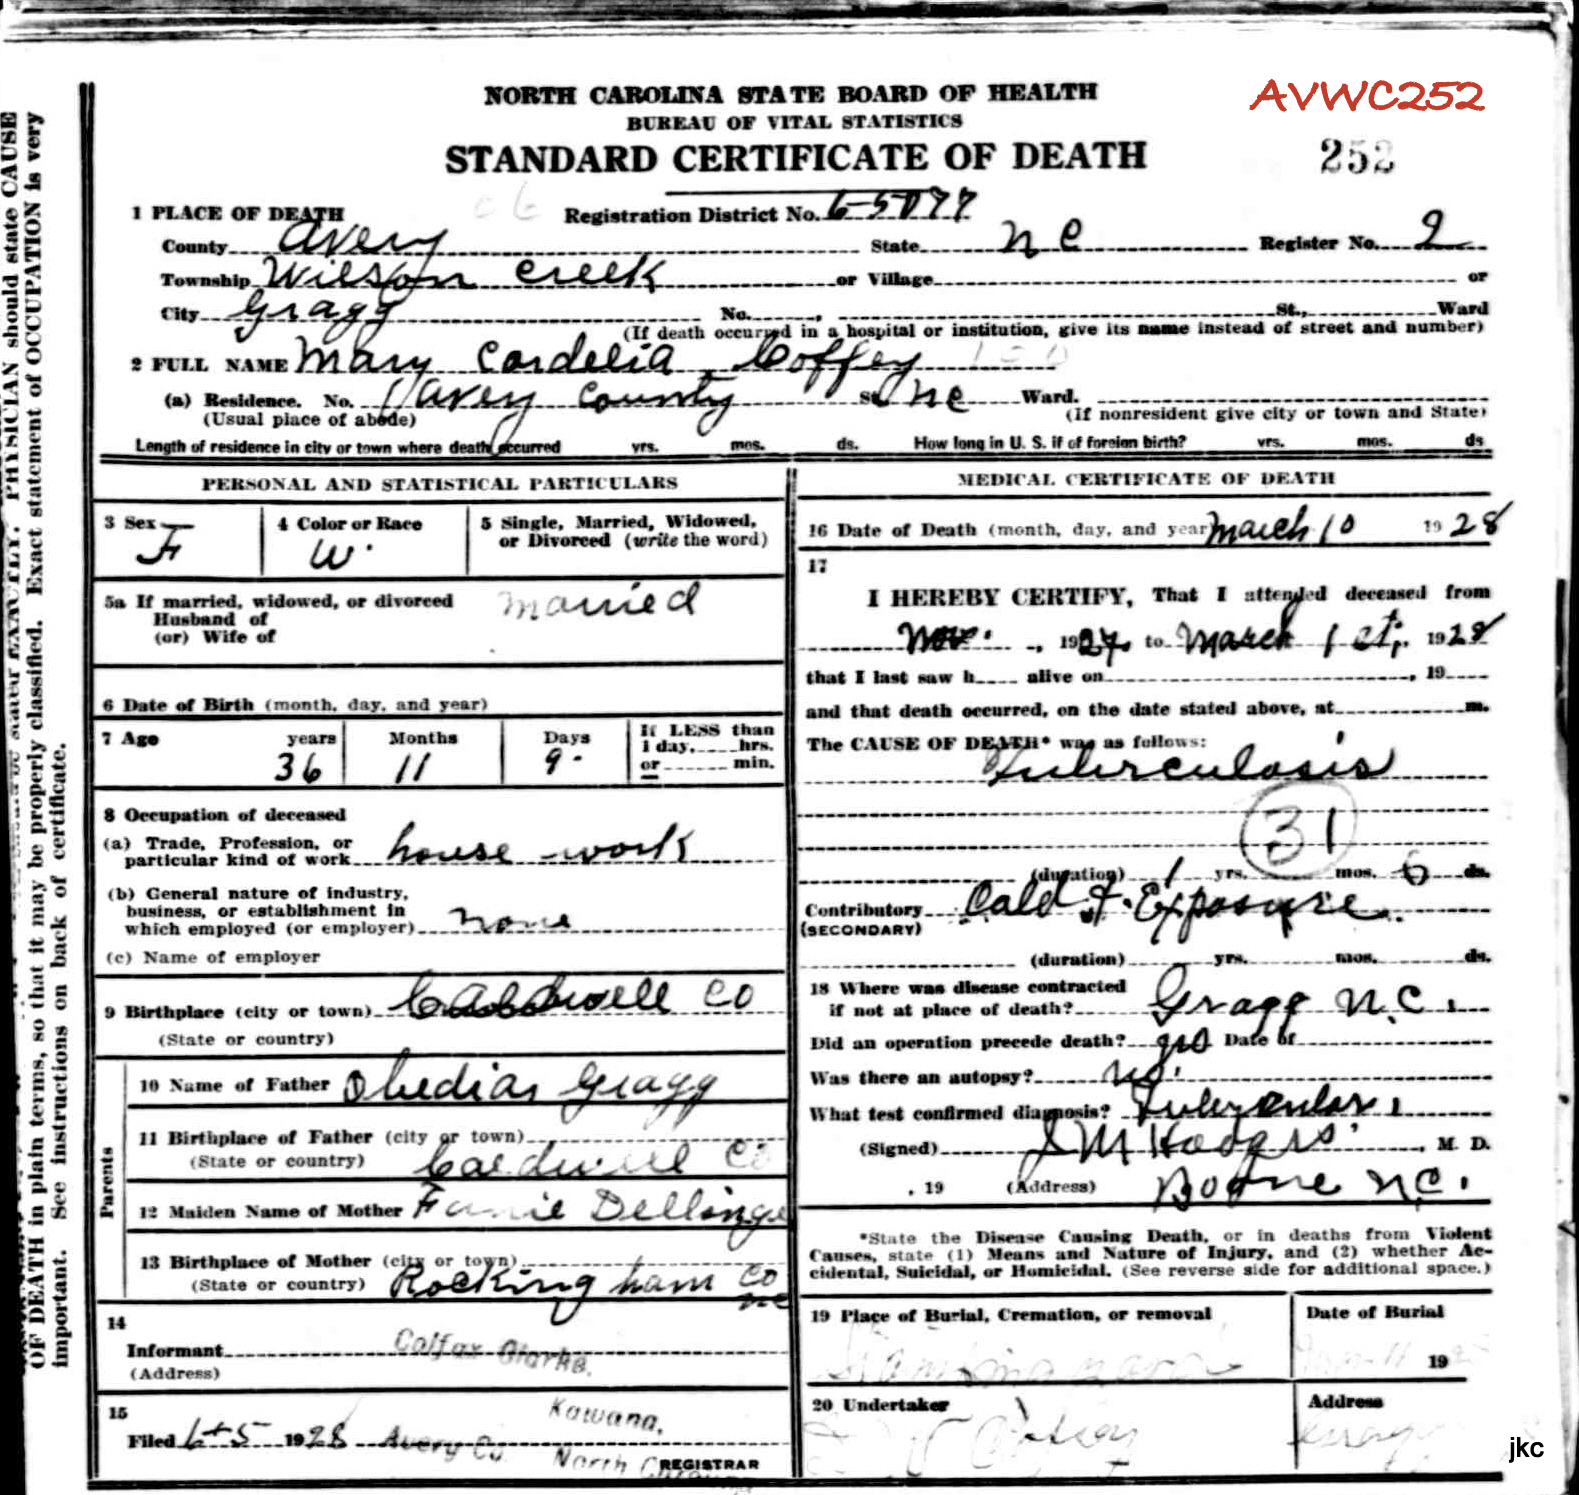 NORTH CAROLINA STATE BOARD OF HEALTH
AVWC252
BUREAU OF VITAL STATISTICS
STANDARD CERTIFICATE OF DEATH
252
1 PLACE OF DEATH
Registration District No. 6-5077
County Avery State N C Register No. 2
Township Wilson Creek or Village or
City Gragg No. , St., Ward
(If death occurred in a hospital or institution, give its name instead of street and number)
2 FULL NAME Mary Cordelia Coffey
(a) Residence. No. Avery County St. NC Ward.
(Usual place of abode) (If nonresident give city or town and State)
Length of residence in city or town where death occurred yrs. mos. ds. How long in U. S. if of foreign birth? yrs. mos. ds
PERSONAL AND STATISTICAL PARTICULARS
3 Sex F
4 Color or Race W.
5 Single, Married, Widowed,
or Divorced (write the word)
married
5a If married, widowed, or divorced
Husband of
(or) Wife of
6 Date of Birth (month, day, and year)
7 Age years 36 Months 11 Days 9
If LESS than
1 day, hrs.
or min.
8 Occupation of deceased
(a) Trade, Profession, or
particular kind of work house work
(b) General nature of industry,
business, or establishment in
which employed (or employer) none
(c) Name of employer
9 Birthplace (city or town) Caldwell Co
(State or country)
Parents
10 Name of Father Obedias Gragg
11 Birthplace of Father (city or town)
(State or country) Caldwell Co
12 Maiden Name of Mother Fannie Dellinge
13 Birthplace of Mother (city or town)
(State or country) Rockingham Co
NC
14
Informant Colfax Clarke.
(Address)
15 Kawana,
Filed 6-5 1928 Avery Co. North
REGISTRAR
MEDICAL CERTIFICATE OF DEATH
16 Date of Death (month, day, and year) March 10 1928
17
I HEREBY CERTIFY, That I attended deceased from
Nov. , 1927, to March 1st, 1928
that I last saw h alive on , 19
and that death occurred, on the date stated above, at m.
The CAUSE OF DEATH* was as follows:
Tuberculosis
31
(duration) 1 yrs. mos. 6 ds.
Contributory Cold & Exposure.
(SECONDARY)
(duration) yrs. mos. ds.
18 Where was disease contracted
if not at place of death? Gragg N.C.
Did an operation precede death? no Date of
Was there an autopsy? No.
What test confirmed diagnosis? Tubercular
(Signed) J M Hodges , M. D.
, 19 (Address) Boone N.C.
*State the Disease Causing Death, or in deaths from Violent
Causes, state (1) Means and Nature of Injury, and (2) whether Ac-
cidental, Suicidal, or Homicidal. (See reverse side for additional space.)
19 Place of Burial, Cremation, or removal
Date of Burial
19
20 Undertaker
Address
jkc
OF DEATH in plain terms, so that it may be properly classified. Exact statement of OCCUPATION is very
important. See instructions on back of certificate.